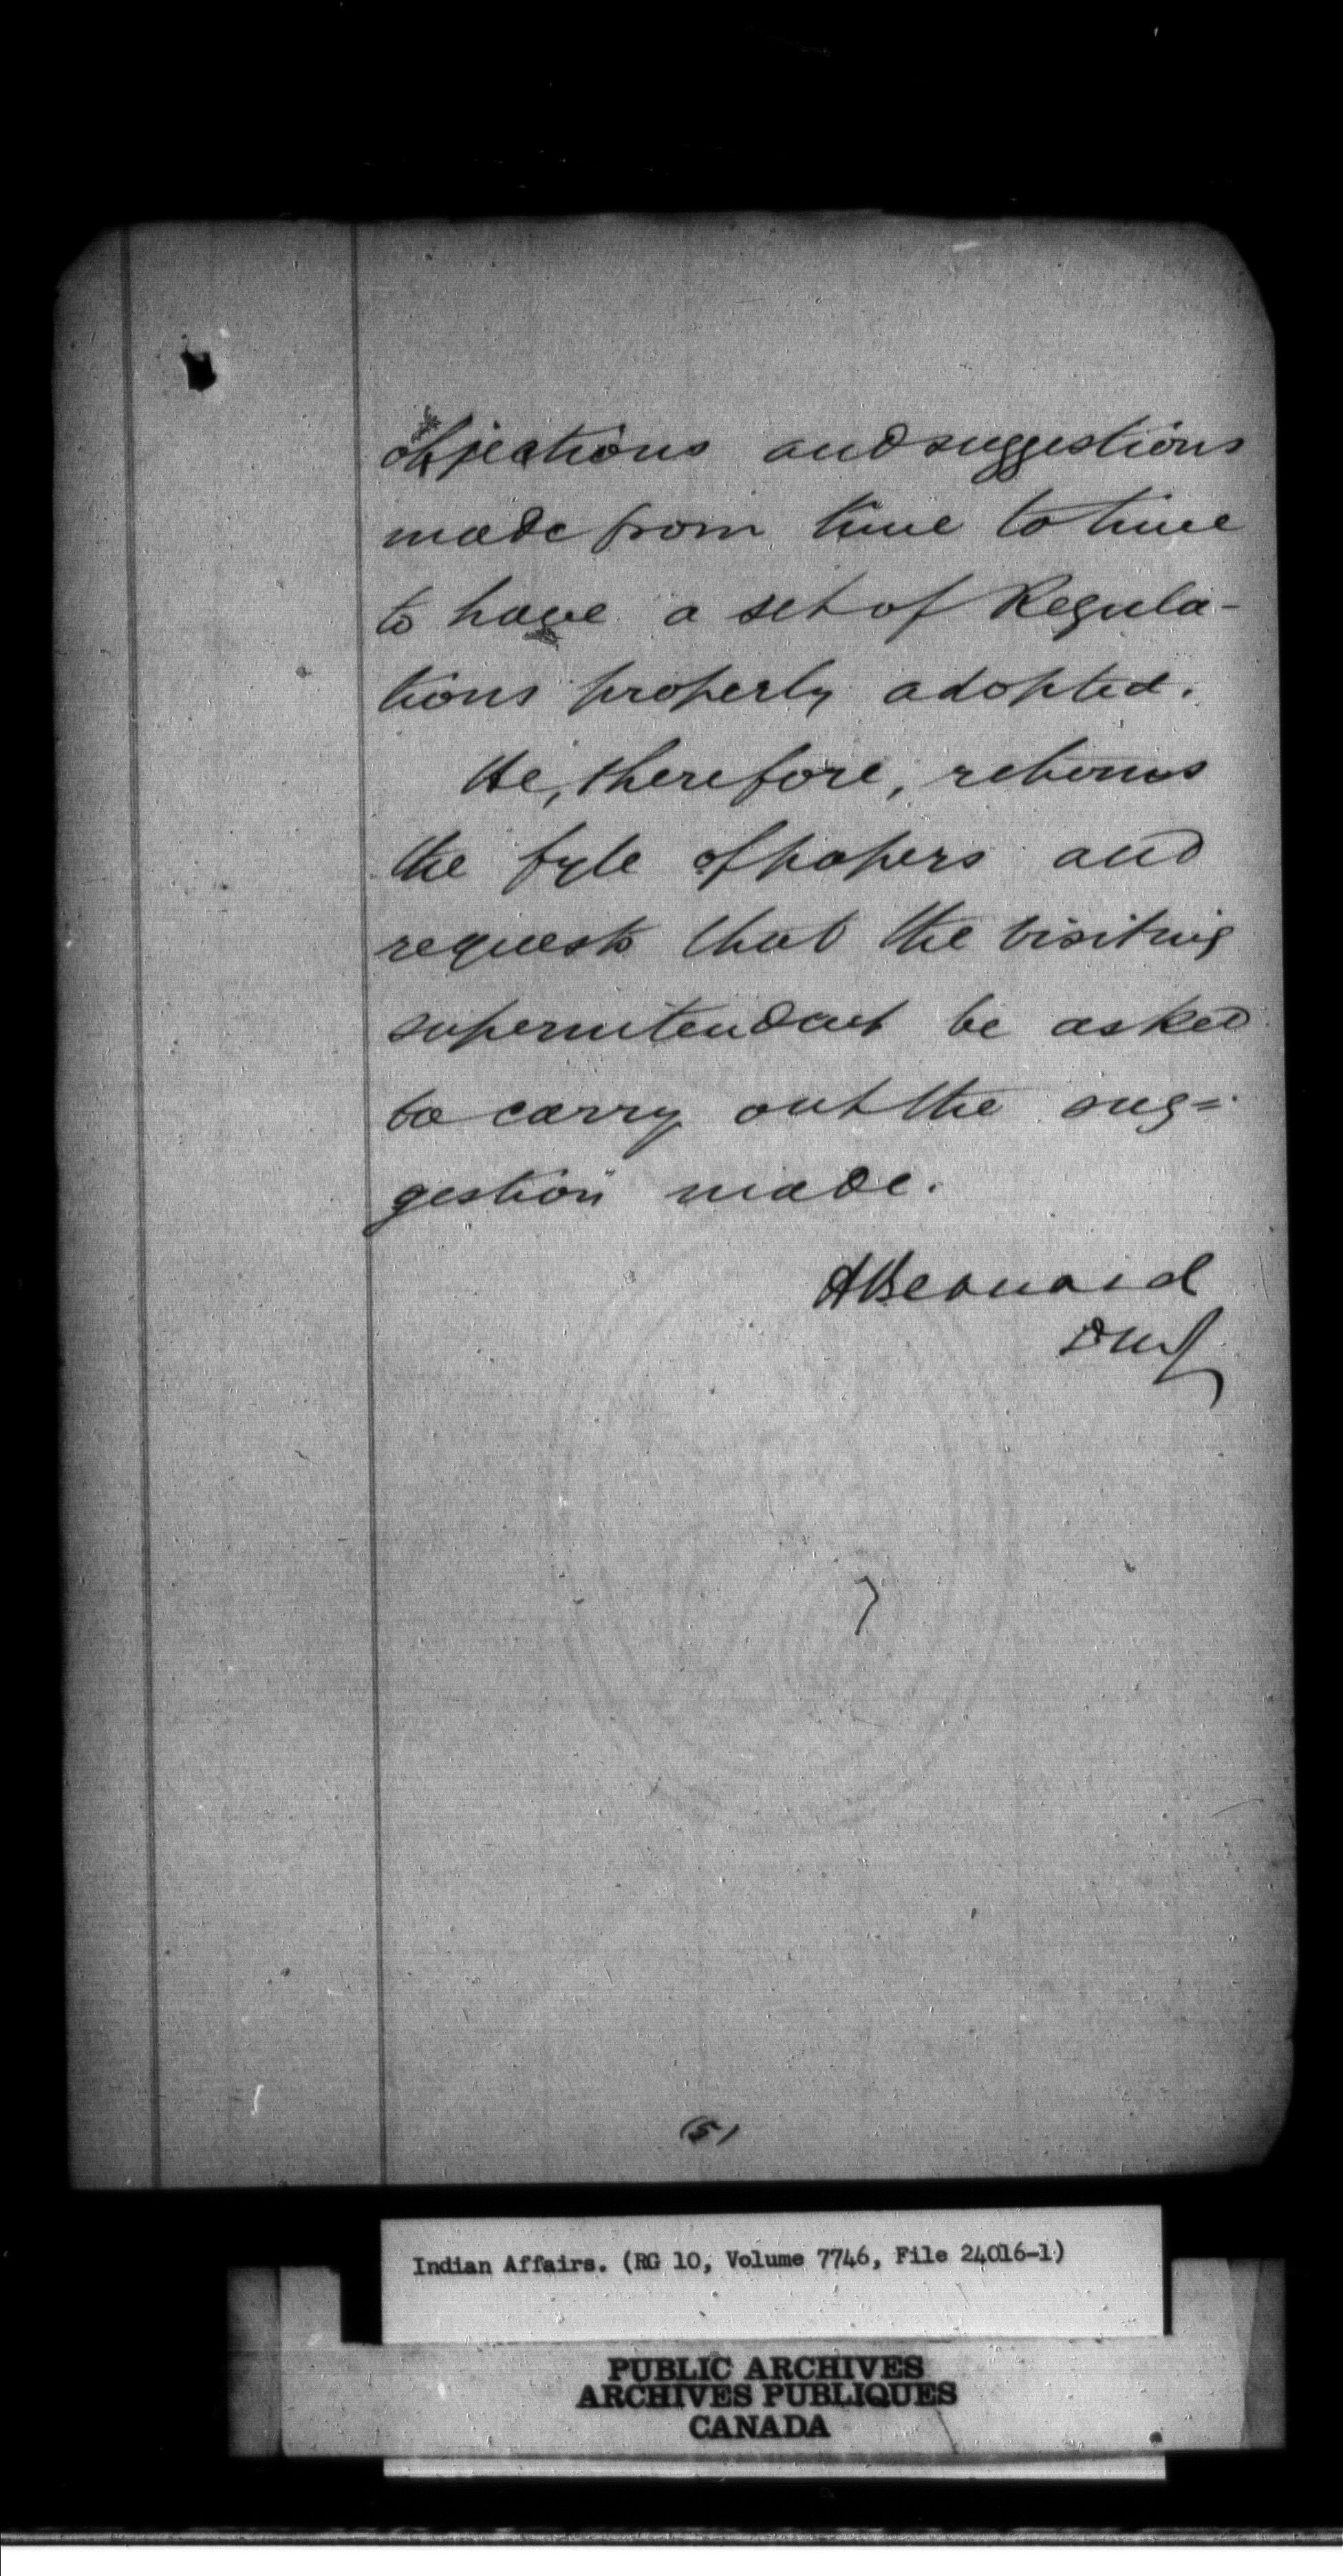 objections and suggestions
made from time to time
to have a set of Regula-
tions properly adopted.
He, therefore, returns
the fyle of papers and
requests that the visiting
superintendent be asked
to carry out the sug=
gestion made.
A Bernard
DMJ
(5)
Indian Affairs. (RG 10, Volume 7746, File 24016-1)
PUBLIC ARCHIVES
ARCHIVES PUBLIQUES
CANADA